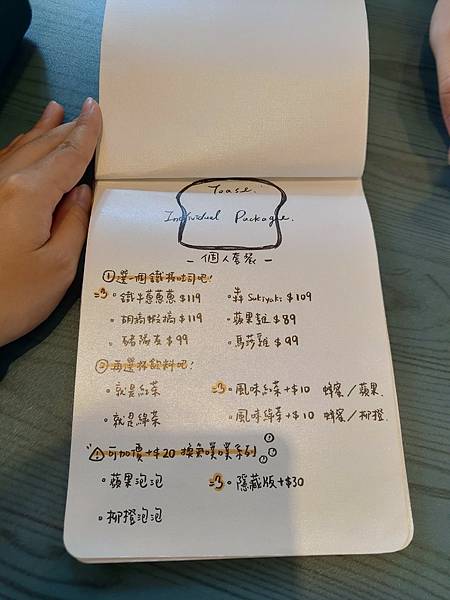 Toast.
Individual Package.
- 個人套餐 -
① 選一個鐵板吐司吧!
。鐵牛蔥蔥蔥 $119 。犇 Sukiyaki $109
$119 。蘋果雞 $89
$99 。馬莎雞 $99
② 再選杯飲料吧!
。就是紅茶 。風味紅茶+$10 蜂蜜/蘋果.
。就是綠茶 。風味綠茶+$10 蜂蜜/柳橙
可加價+$20 換氣噗噗系列
。蘋果泡泡 。隱藏版+$30
。柳橙泡泡